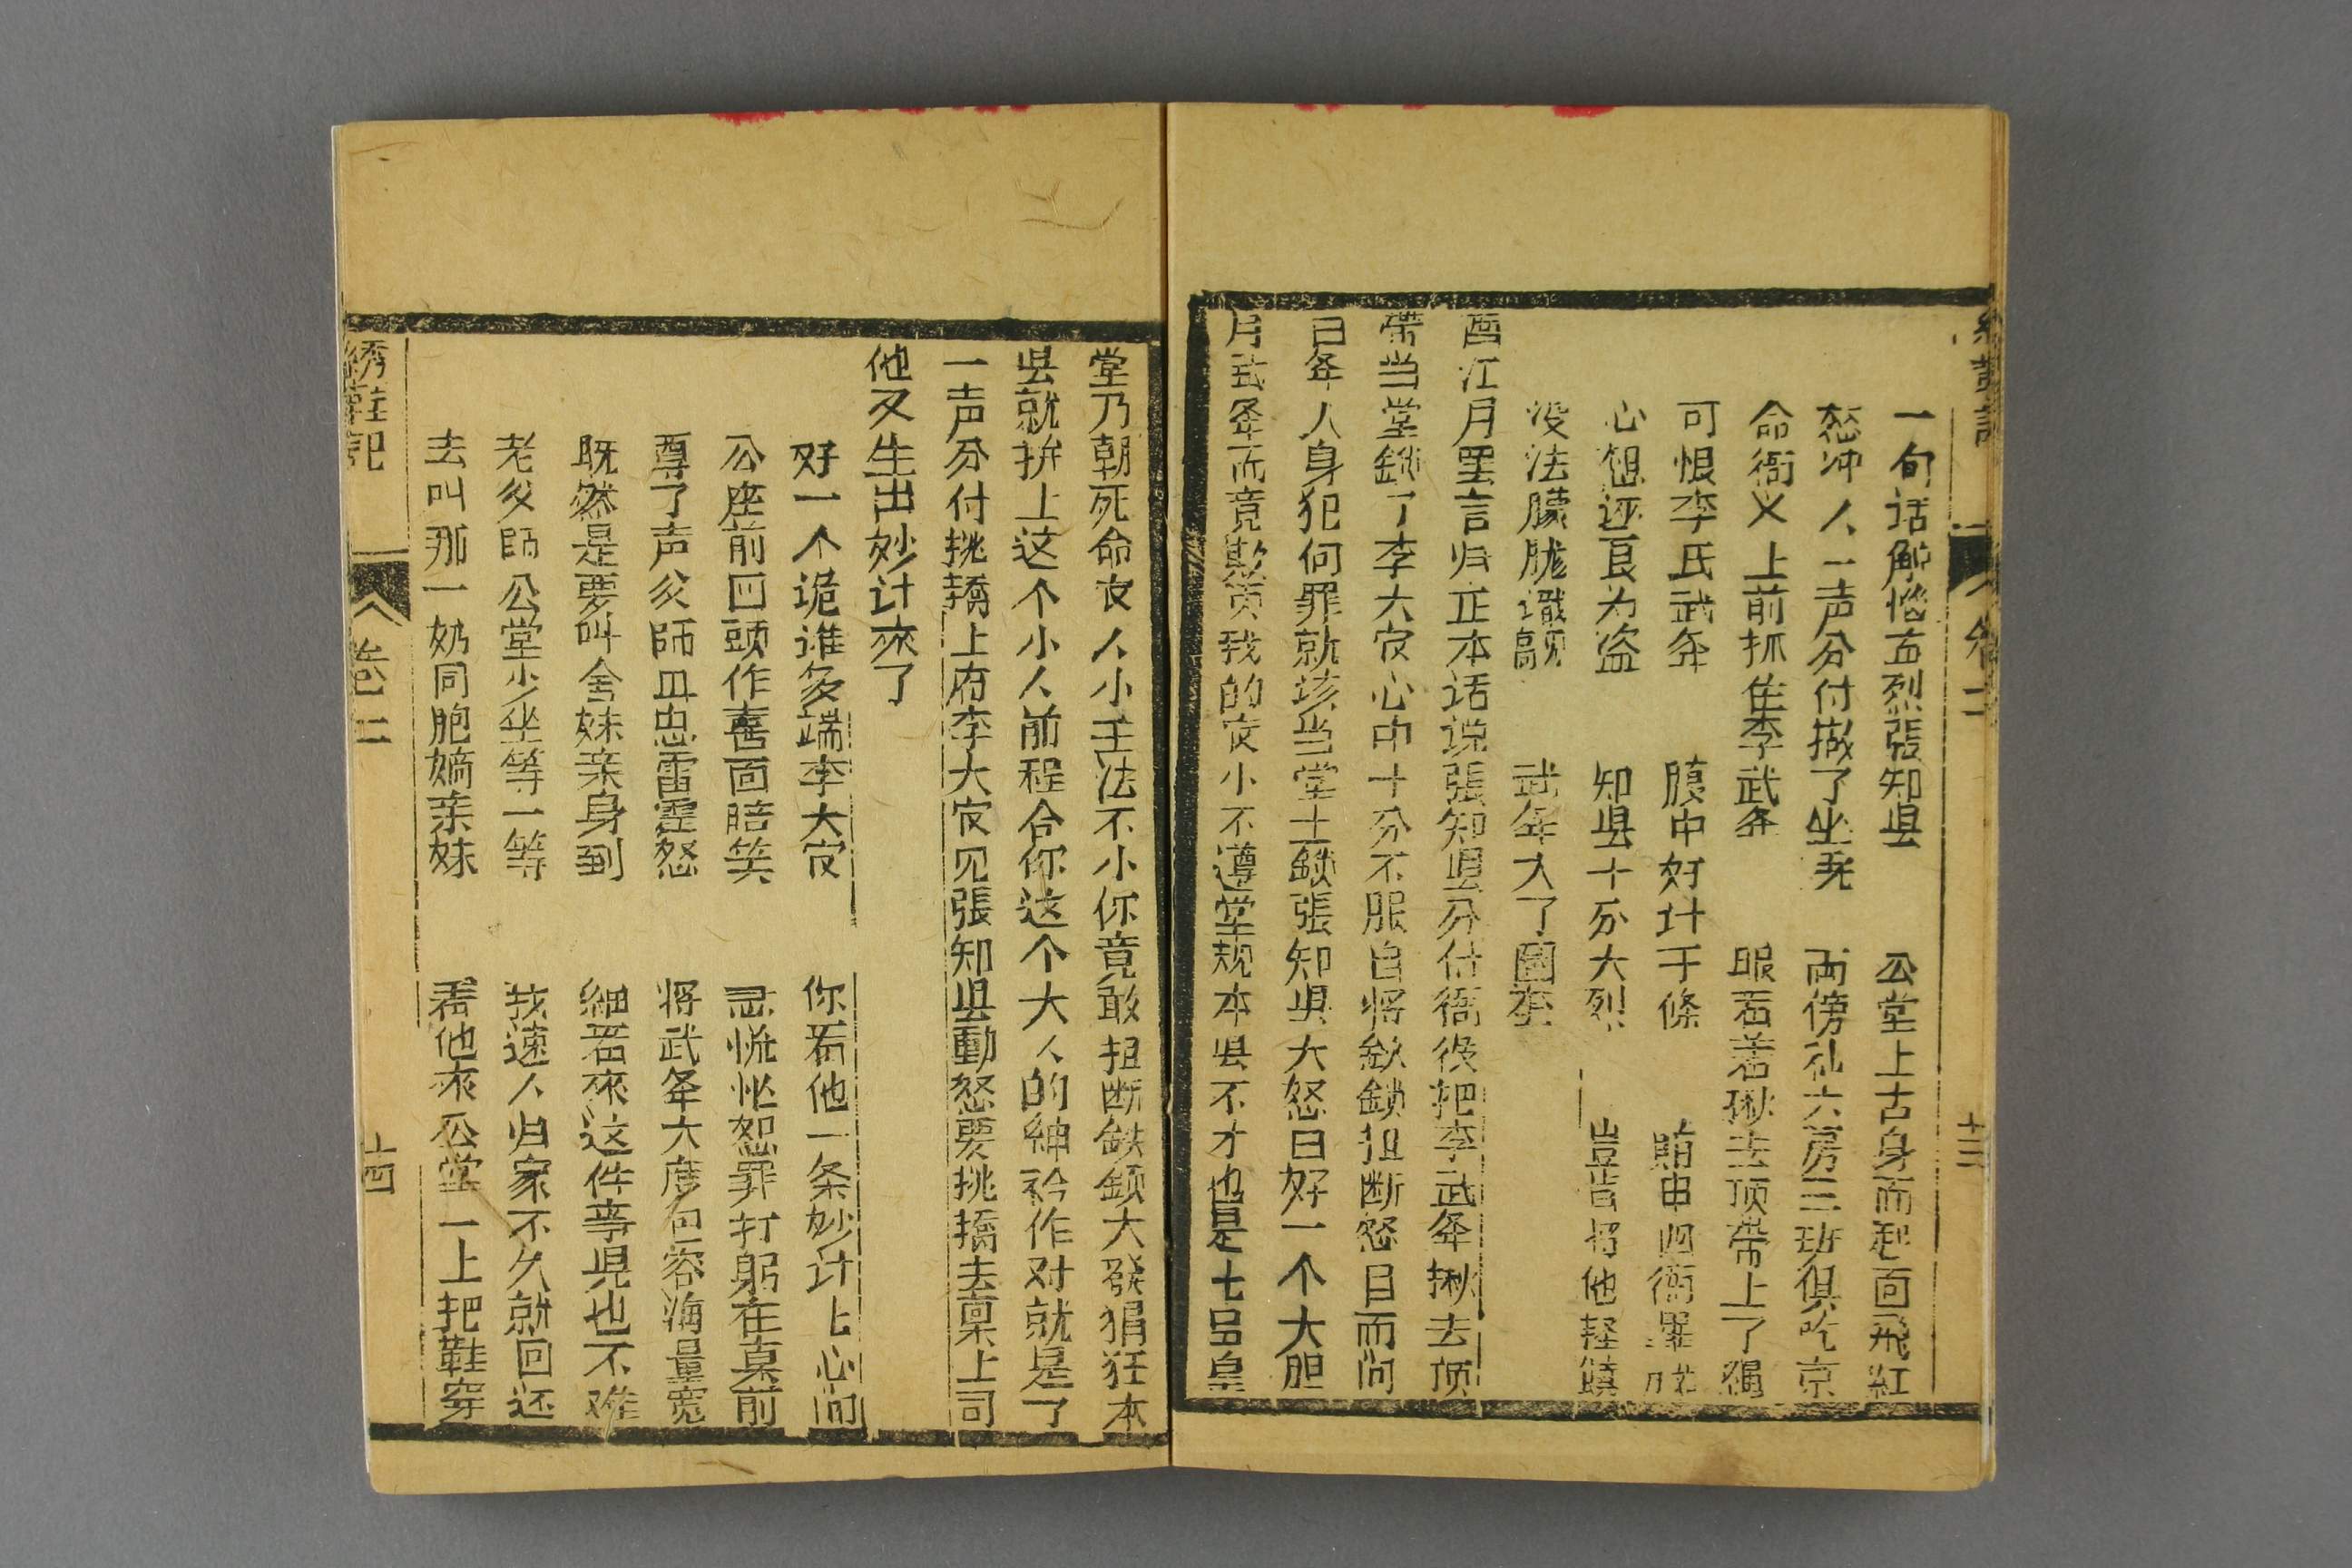 一句话觧怡𫝆烈張知县　公堂上古身而起面飛紅
怒冲人一声分付撤了坐　両傍礼六房三班俱吃京
命衙义上前抓住李武年　眼看着揪去顶帶上了繩
可恨李氏武年　腹中好计千條
心想还良为盗　知县十分大烈　豈肯将他轻饒
没法朦胧　武年大了
酉江月罢言归正本话说張知县分付衙役把李武年揪去顶
帶当堂鎖了李大官心中十分不服自将鉄鎖扭断怒目而问
曰年人身犯何罪就该当堂上鎖張知县大怒曰好一个大胆
月武年而竟欺負我的官小不遵堂规本县不才也是七品皇
堂乃朝死命官人小王法不小你竟敢扭断鉄鎖大發猖狂本
县就拚上这个小人前程合你这个大人的紳衿作对就是了
一声分付挑轎上府李大官见張知县動怒要挑轎去禀上司
他又生出妙计來了
好一个诡谁多端李大官　你看他一条妙计上心间
公座前回頭作喜面赔笑　忌慌忙恕罪打躬在桌前
尊了声父師皿忠雷霆怒　将武年大度包容海量寬
既然是要叫舍妹亲身到　細看來这件事児也不难
老父師公堂少坐等一等　我速人归家不久就回还
去叫那一奶同胞嫡亲妹　看他來公堂一上把鞋穿
綉鞋記
卷二
十四